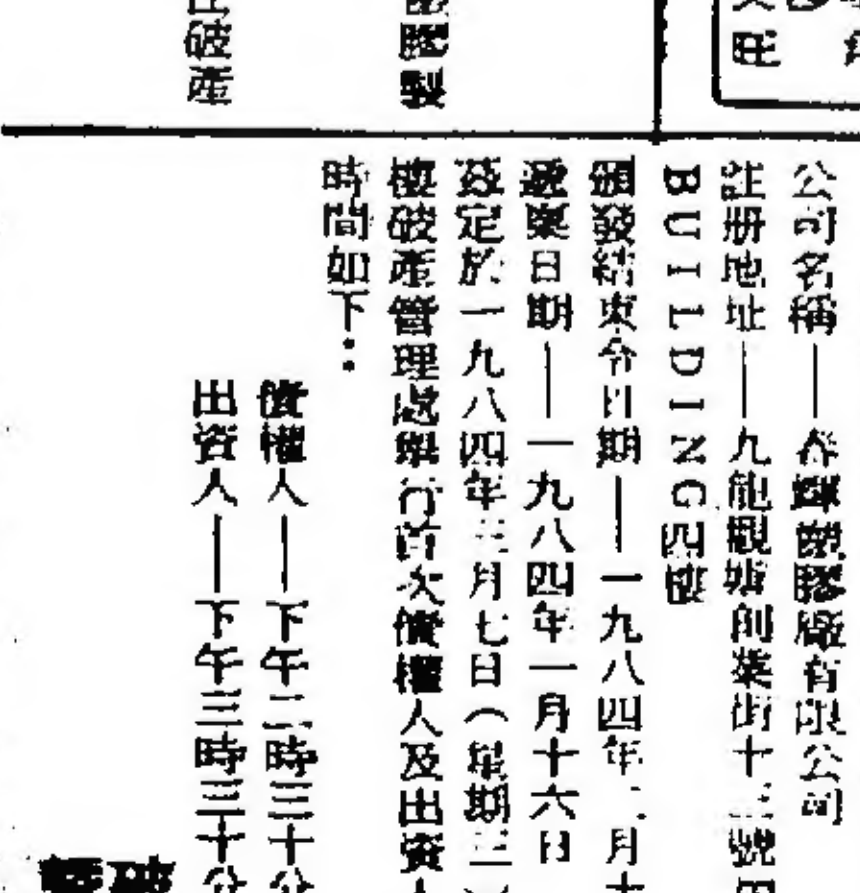 旺
膠製
破產
公司名稱——春輝塑膠廠有限公司
註册地址——九龍觀塘創業街十三號
BUILDING四樓
頒發結束令日期——一九八四年 月十
遞案日期——一九八四年一月十六日
茲定於一九八四年三月七日(星期三
樓破產管理處舉行首次債權人及出資人
時間如下:
債權人——下午二時三十分
出資人——下午三時三十分
破